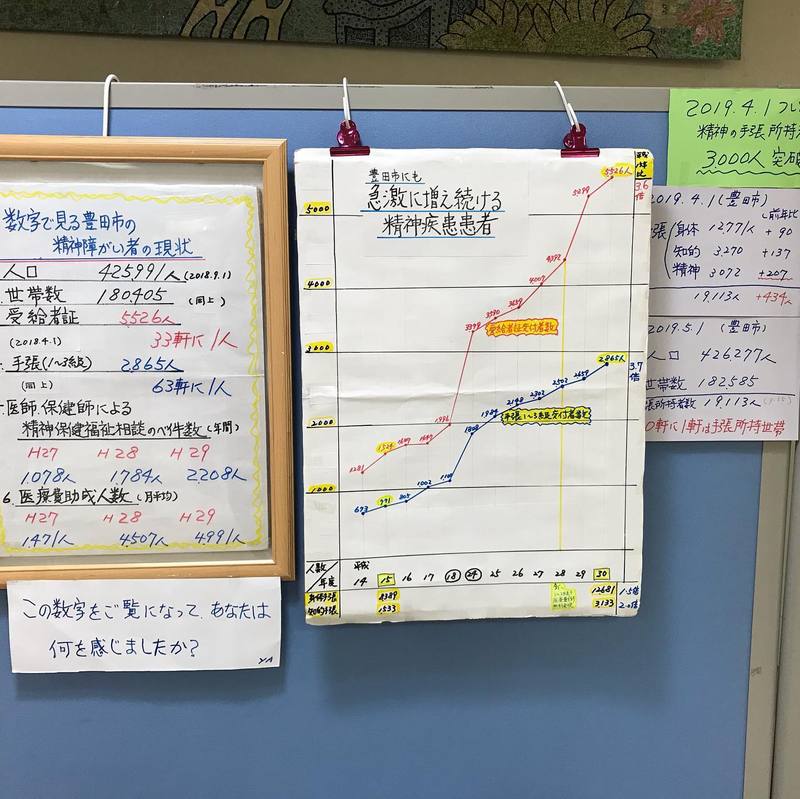 数字で見る豊田市の
精神障がい者の現状
人口 425991人(2018.9.1)
世帯数 180405 (同上)
受給者証 5526人
(2018.4.1) 33軒に1人
手張(1〜3級) 2.865人
(同上) 63軒に1人
医師.保健師による
精神保健福祉相談のべ件数(年間)
H27 H28 H29
1.078人 1.784人 2.208人
6.医療費助成人数(月平均)
H27 H28 H29
1.471人 4.507人 4.991人
この数字をご覧になって、あなたは
何を感じましたか?
YA
豊田市にも
急激に増え続ける
精神疾患患者
5000
4000
3000
2000
1000
5526人
5299
4392
4007
3659
3540
3399
1996
1524
1281
受給者証交付者数
3.6倍
2.865人
2659
2503
2303
2148
1984
1808
1003
805
771
673
手張1〜3級交付者数
3.7倍
人数/年度
平成
14 15 16 17 18 24 25 26 27 28 29 30
身体手張 4389 12681 1.5倍
知的手張 1533 3133 2.0倍
2019.4.1
精神の手張所持
3000人突破
2019.4.1(豊田市)
前年比
身体 12771人 +90
知的 3.270 +137
精神 3072 +207
19.113人 +434人
2019.5.1 (豊田市)
人口 426277人
世帯数 182585
張所持者数 19.113人
0軒に1軒は手張所持世帯